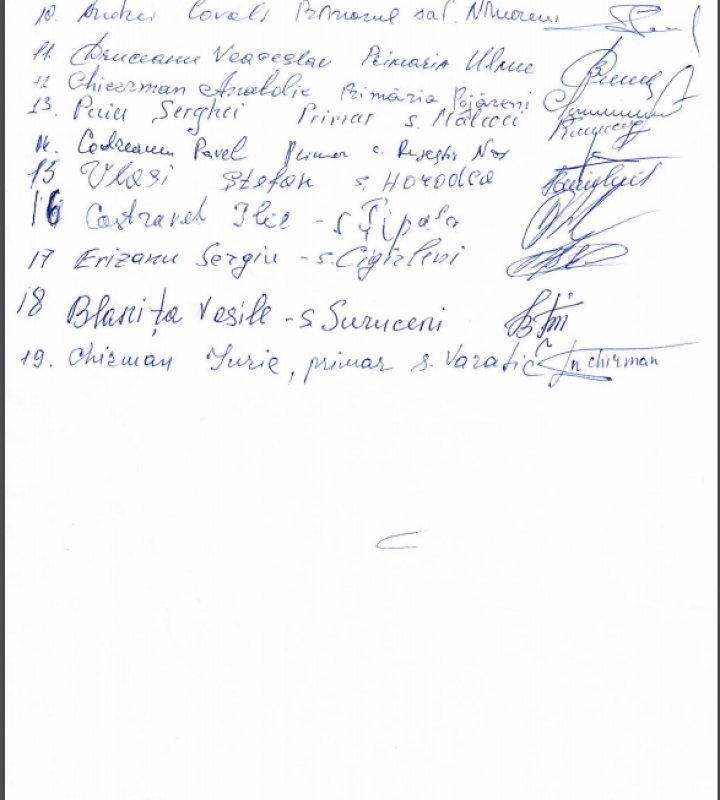 10. Andrei Covali Primarul sat. Nimoreni
11. Druceanu Veaceslav Primăria Ulmu
12 Chicerman Anatolie Primăria Pojăreni
13. Puiu Serghei Primar s. Mălcoci
14. Codreanu Pavel Primar s.
15 Vlasi Ștefan s. Horodca
16 Costravel Ilie - s Țipala
17 Erizanu Sergiu - s. Cigîrleni
18 Blanița Vasile - s Suruceni
19. Chirman Iurie, primar s. Varatic chirman